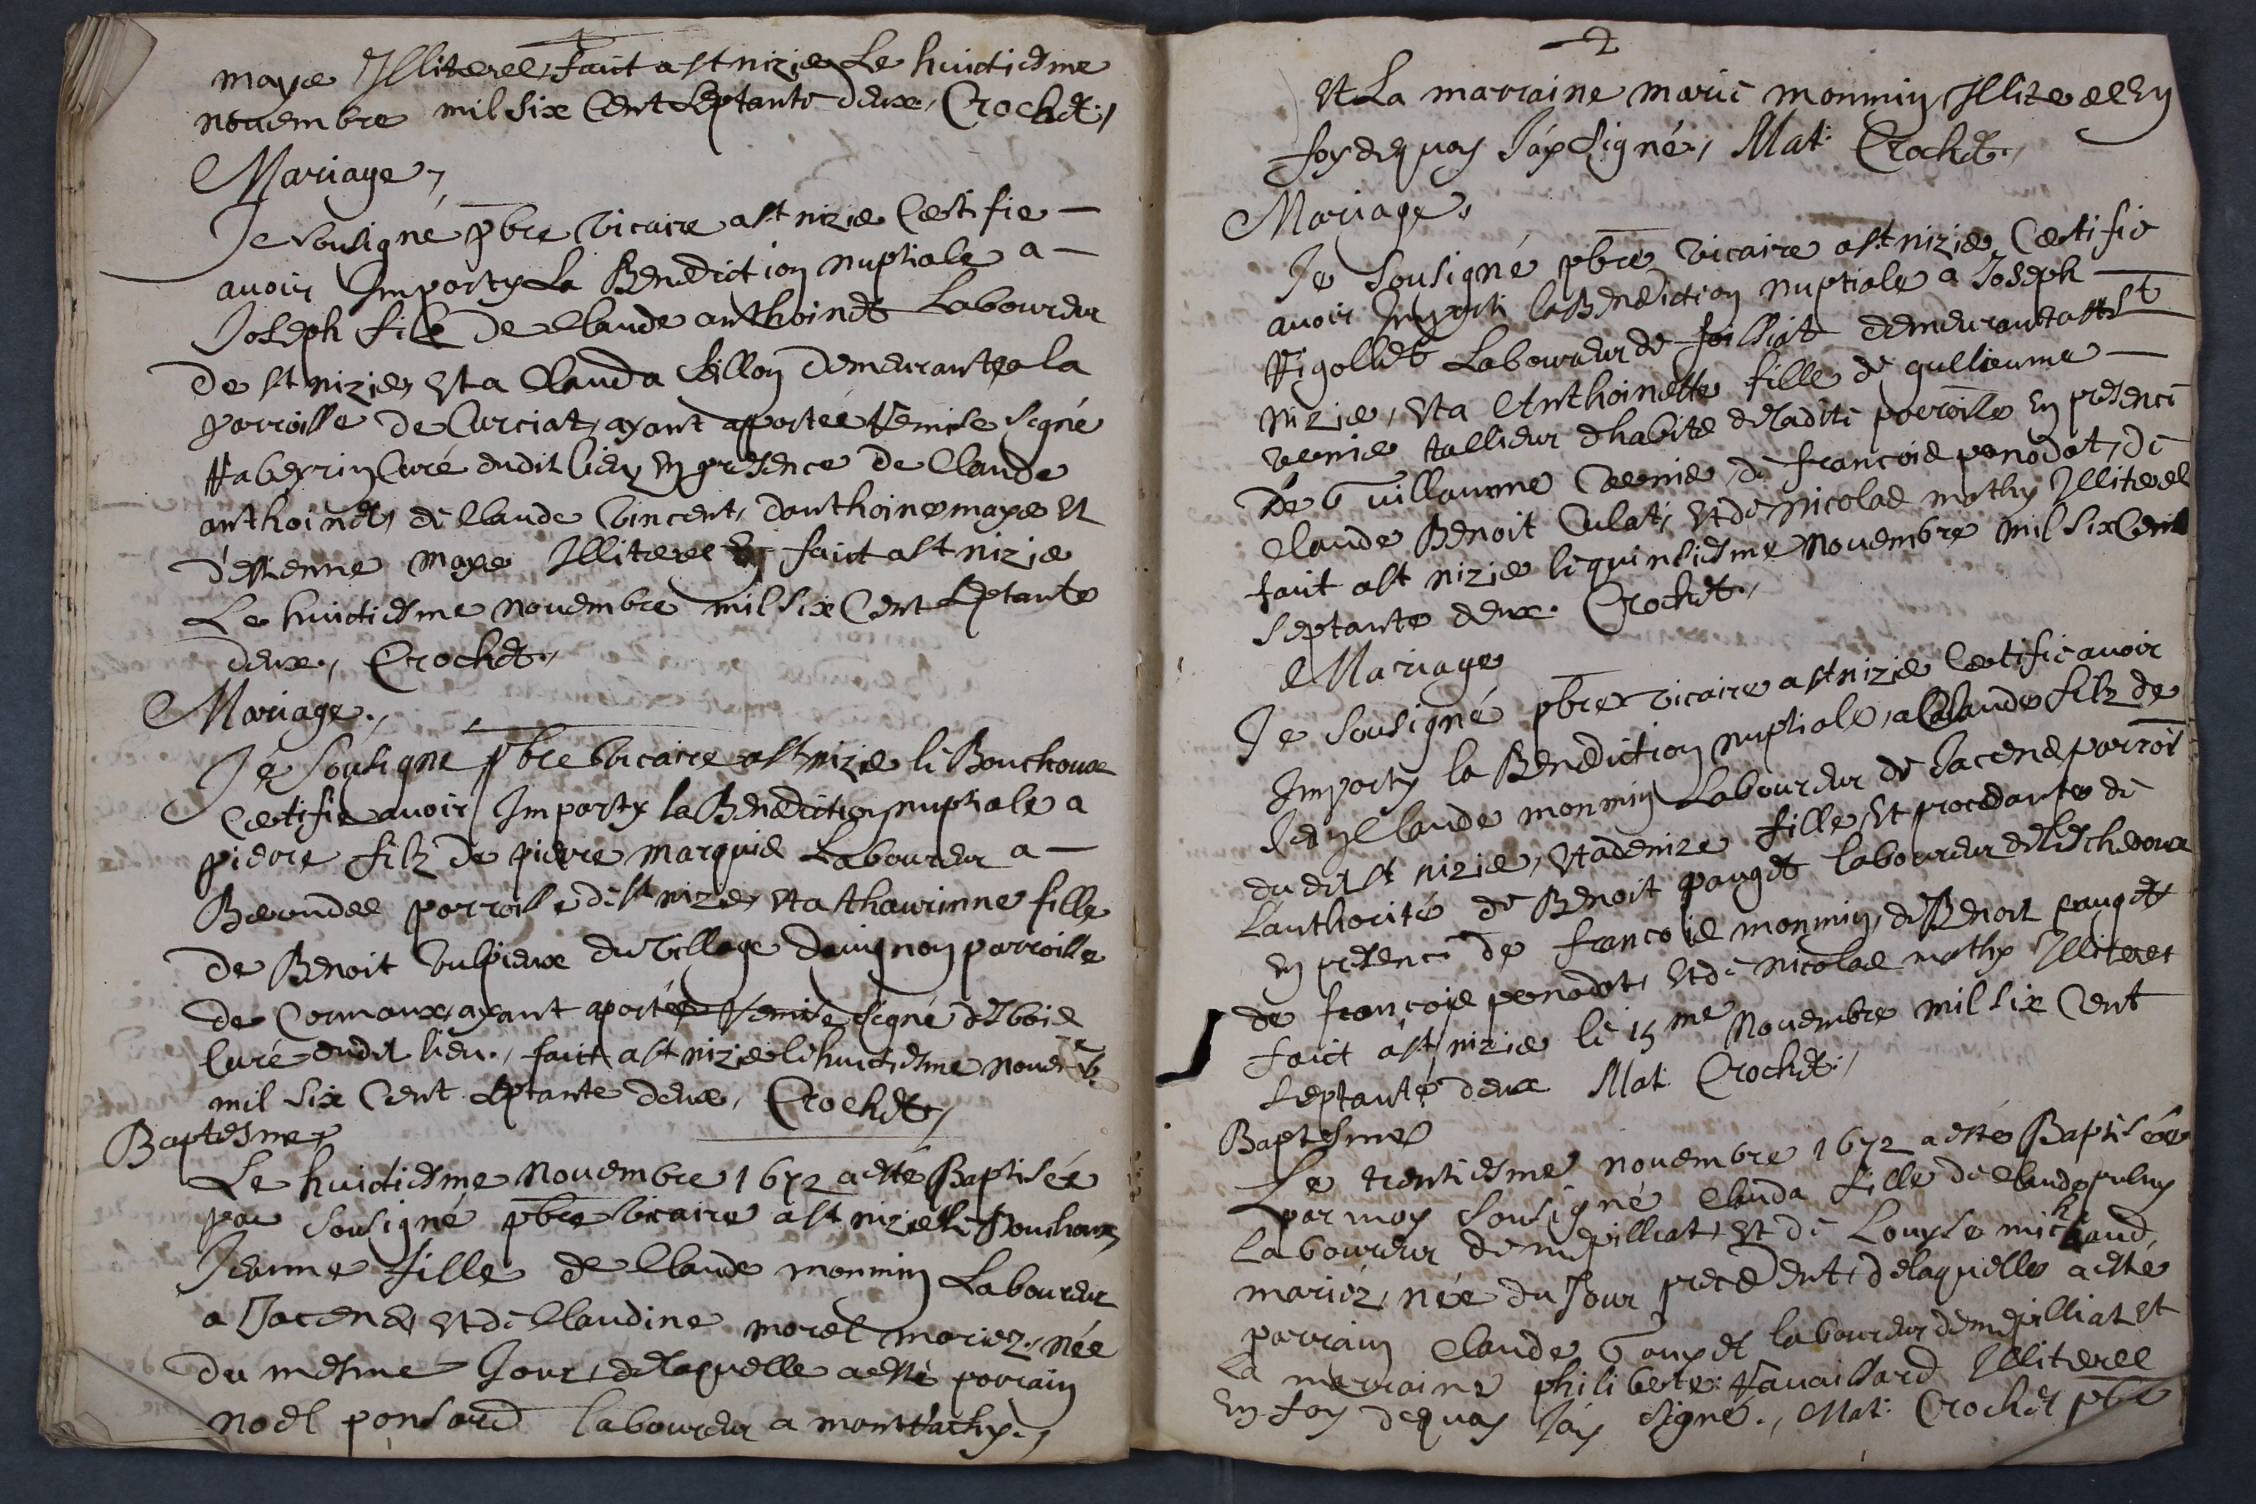 maya Illiteres, faict a st nizie Le huictiesme
novembre mil six Cent septante deux, Crochet,
Mariage,
Je sousigné pbre vicaire a st nizie Certifie –
avoir Imparty La Benediction nuptiale a –
Joseph filz De Claude anthoinet Laboureur
De st nizie, et a Clauda fillon demeurante a la
parroisse De Curciat, ayant aportée remise signé
curé dudit lieu, en presence de Claude
anthoinet, de Claude Vincent, d'anthoine maya et
d'estienne maya Illiteres faict a st nizie
Le huictiesme novembre mil six Cent septante
deux, Crochet,
Mariage,
Je sousigne pbre vicaire a st nizie le Bouchoux
Certifie avoir Imparty la Benediction nuptiale a
pierre filz De pierre marquis Laboureur a –
parroisse de st nizie, et a thaurinne fille
De Benoit vulpieux du village davignon parroisse
de Cormaux, ayant aportée remise signé
Curé dudit lieu, faict a st nizie le huictiesme nove
mil six Cent septante deux, Crochet,
Baptesme,
Le huictiesme Novembre 1672 a esté Baptisée
par sousigné pbre vicaire a st nizie le Bouchoux
Jeanne fille de Claude monmin Laboureur
a Jacena, et de Claudine morel mariez, née
du mesme Jour, de laquelle a esté parrain
noel ponsard laboureur a
2
et La marraine marie monmin Illitere en
foy de quoy J'ay signé, Mat: Crochet,
Mariage,
Je sousigné pbre vicaire a st nizie Certifie
avoir Imparti la Benediction nuptiale a Joseph
Rigollet Laboureur de foissiat demeurant a st
nizie, et a Anthoinette fille de gulliaume –
vernie tallieur d'habits de ladite parroisse en presence
De Guillaume vernie, de francois ponodot, de
Claude Benoit Culat, et de nicolas mathy Illiteres
faict a st nizie le quinsiesme novembre mil six Cent
septante deux. Crochet,
Mariage
Je sousigné pbre vicaire a st nizie Certifie avoir
Imparty la Benediction nuptiale, a Claude filz de
feu Claude monmin Laboureur de Jacena parrois
dudit st nizie, et a denize fille, et procedante de
l'authorité de Benoit pauget laboureur de
en presence de francois monmin, de Benoit pauget
de francois ponodot, et de nicolas mathy Illiteres
faict a st nizie le 15me Novembre mil six Cent
septante deux Mat: Crochet,
Baptesme
Le trentiesme novembre 1672 a esté Baptisée
par moy sousigné Clauda fille de Claude
laboureur de mepilliat, et de Louyse michaud,
mariez, née du Jour precedent, de laquelle a esté
parrain Claude laboureur de mepilliat et
La marraine philiberte favaissard Illiteres
en foy de quoy J'ay signé., Mat: Crochet pbre